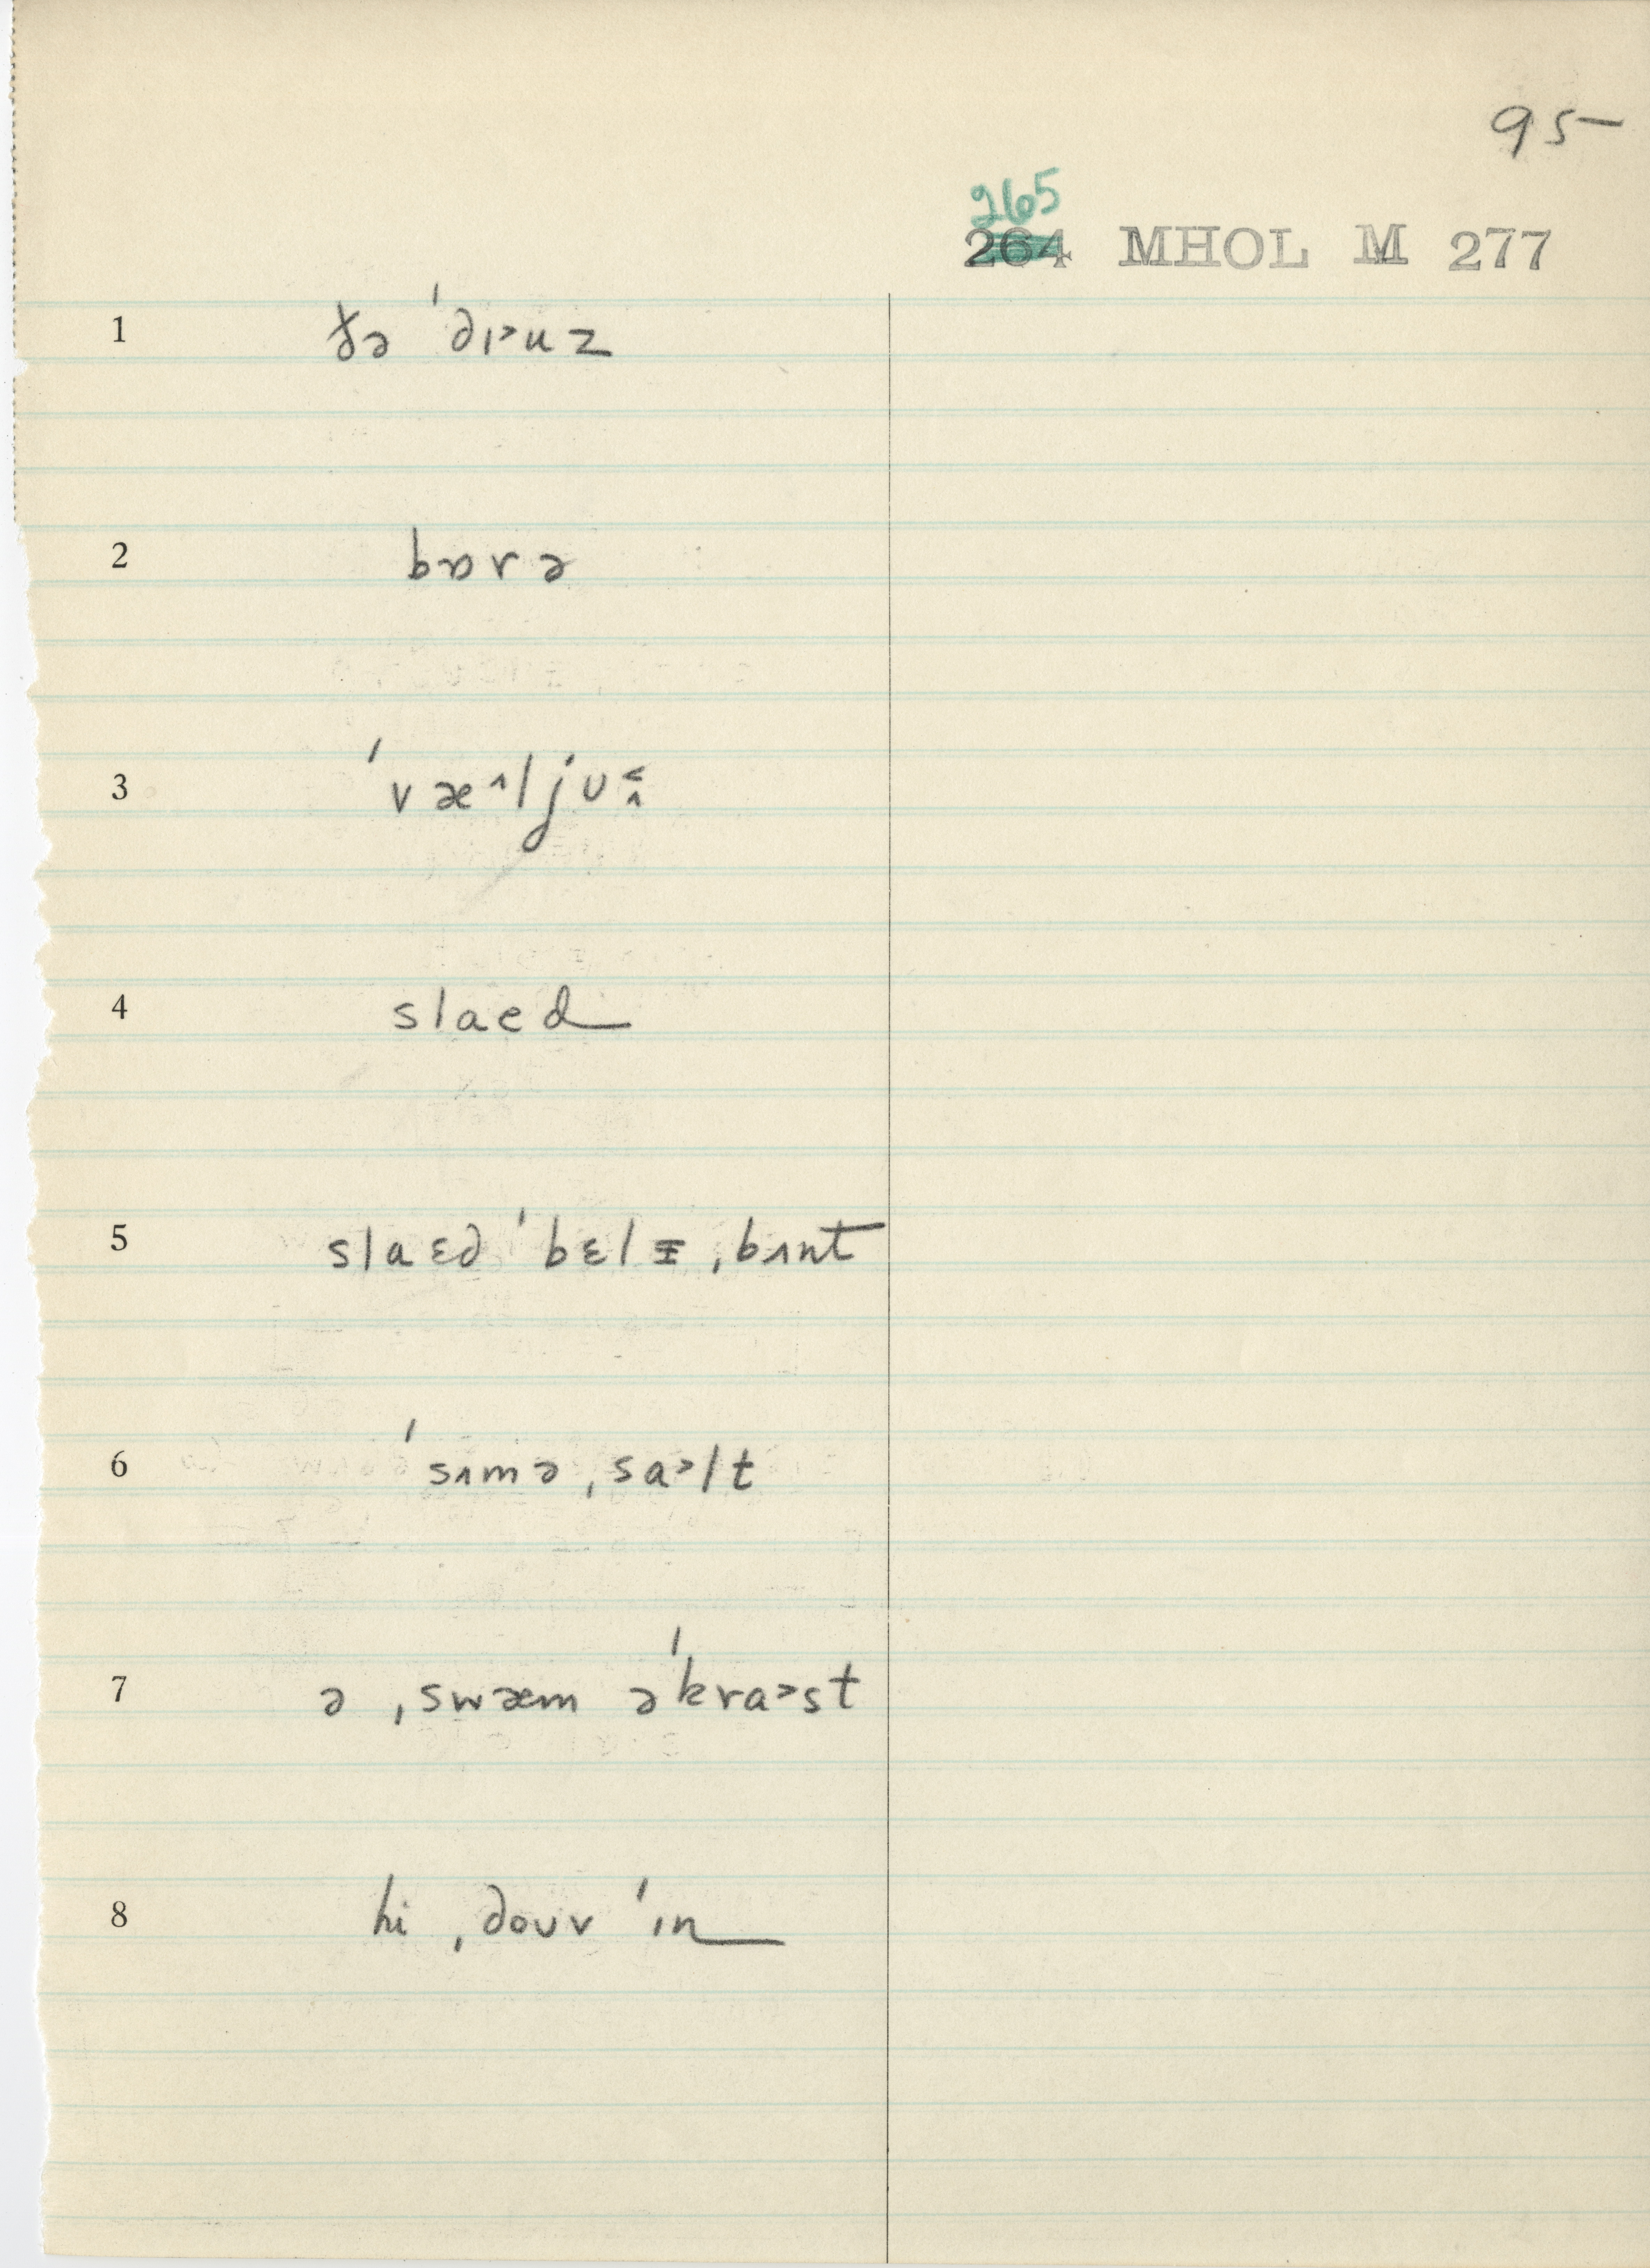 95
265
264 MHOL M 277
1 ðə ˈdɪ˃uz
2 bɒrə
3 ˈvæ^ljʊ
4 slaed
5 slaɛd ˈbɛlɪ ˌbʌnt
6 ˈsʌmə ˌsa˃lt
7 ə ˌswæm əˈkra˃st
8 hi ˌdouv ˈɪn